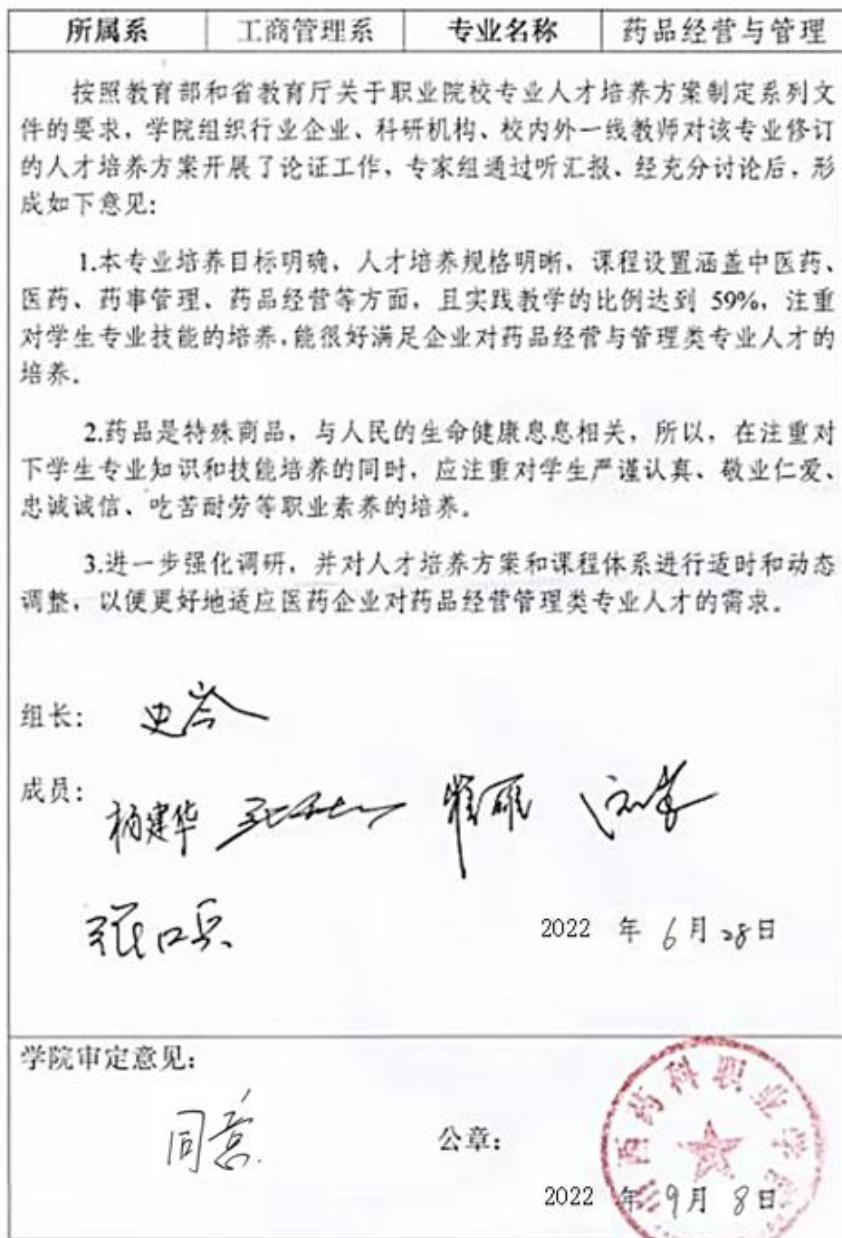 所属系 工商管理系 专业名称 药品经营与管理
按照教育部和省教育厅关于职业院校专业人才培养方案制定系列文
件的要求，学院组织行业企业、科研机构、校内外一线教师对该专业修订
的人才培养方案开展了论证工作，专家组通过听汇报、经充分讨论后，形
成如下意见：
1.本专业培养目标明确，人才培养规格明晰，课程设置涵盖中医药、
医药、药事管理、药品经营等方面，且实践教学的比例达到 59%，注重
对学生专业技能的培养，能很好满足企业对药品经营与管理类专业人才的
培养。
2.药品是特殊商品，与人民的生命健康息息相关，所以，在注重对
下学生专业知识和技能培养的同时，应注重对学生严谨认真、敬业仁爱、
忠诚诚信、吃苦耐劳等职业素养的培养。
3.进一步强化调研，并对人才培养方案和课程体系进行适时和动态
调整，以便更好地适应医药企业对药品经营管理类专业人才的需求。
组长：
成员：
杨建华
2022 年 6月28日
学院审定意见：
同意
公章：
西药科职业学院
2022 年 9月 8日